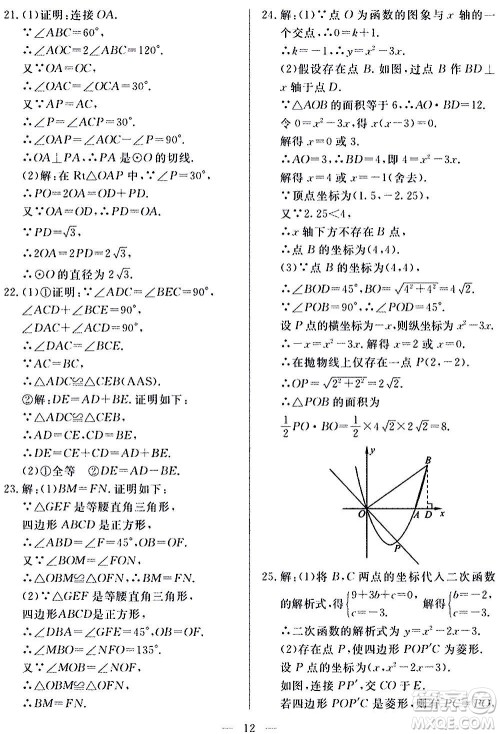 21.(1)证明:连接OA.
∵∠ABC=60°,
∴∠AOC=2∠ABC=120°.
∵OA=OC,
∴∠OAC=∠OCA=30°.
又∵AP=AC,
∴∠P=∠ACP=30°.
∴∠OAP=∠AOC-∠P=90°.
∴OA⊥PA,∴PA是⊙O的切线.
(2)解:在Rt△OAP中∵∠P=30°,
∴PO=2OA=OD+PD.
又∵OA=OD,
∴PD=OD=OA.
∵PD=√3,
∴2OA=2PD=2√3.
∴⊙O的直径为2√3.
22.(1)①证明:∵∠ADC=∠BEC=90°,
∠ACD+∠BCE=90°,
∠DAC+∠ACD=90°,
∴∠DAC=∠BCE.
又∵AC=BC,
∴△ADC≌△CEB(AAS).
②解:DE=AD+BE.证明如下:
∵△ADC≌△CEB,
∴AD=CE,CD=BE.
∴DE=CE+CD=AD+BE.
(2)①全等 ②DE=AD-BE.
23.解:(1)BM=FN.证明如下:
∵△GEF是等腰直角三角形,
四边形ABCD是正方形,
∴∠ABD=∠F=45°,OB=OF.
又∵∠BOM=∠FON,
∴△OBM≌△OFN.
∴BM=FN.
(2)∵△GEF是等腰直角三角形,
四边形ABCD是正方形,
∴∠DBA=∠GFE=45°,OB=OF.
∴∠MBO=∠NFO=135°.
又∵∠MOB=∠NOF,
∴△OBM≌△OFN.
∴BM=FN.
24.解:(1)∵点O为函数的图象与x轴的一
个交点,∴0=k+1.
∴k=-1,∴y=x²-3x.
(2)假设存在点B,过点B作BD⊥
x轴于点D.
∵△AOB的面积等于6,∴AO·BD=12.
令0=x²-3x,
解得x=0或3.
∴AO=3,∴BD=4,即4=x²-3x.
解得x=4或x=-1(舍去).
∵顶点坐标为(1.5,-2.25),
又∵2.25<4,
∴x轴下方不存在点B.
∴点B的坐标为(4,4).
(3)∵点B的坐标为(4,4),
∴∠BOD=45°,BO=√4²+4²=4√2.
∵∠POB=90°,∴∠POD=45°.
设P点的横坐标为x,则纵坐标为-x.
∴-x=x²-3x,解得x=2或x=0.
∴在抛物线上仅存在一点P(2,-2).
∴OP=√2²+2²=2√2.
∴△POB的面积为
1/2 PO·BO=1/2×4√2×2√2=8.
y
B
O A D x
P
25.解:(1)将B,C两点的坐标代入二次函数
的解析式,得{9+3b+c=0, c=-3. 解得{b=-2, c=-3.
∴二次函数的解析式为y=x²-2x-3.
(2)存在点P,使四边形POP'C为菱形.
如图,连接PP',交CO于E.
若四边形POP'C是菱形,则有PC=PO.
12